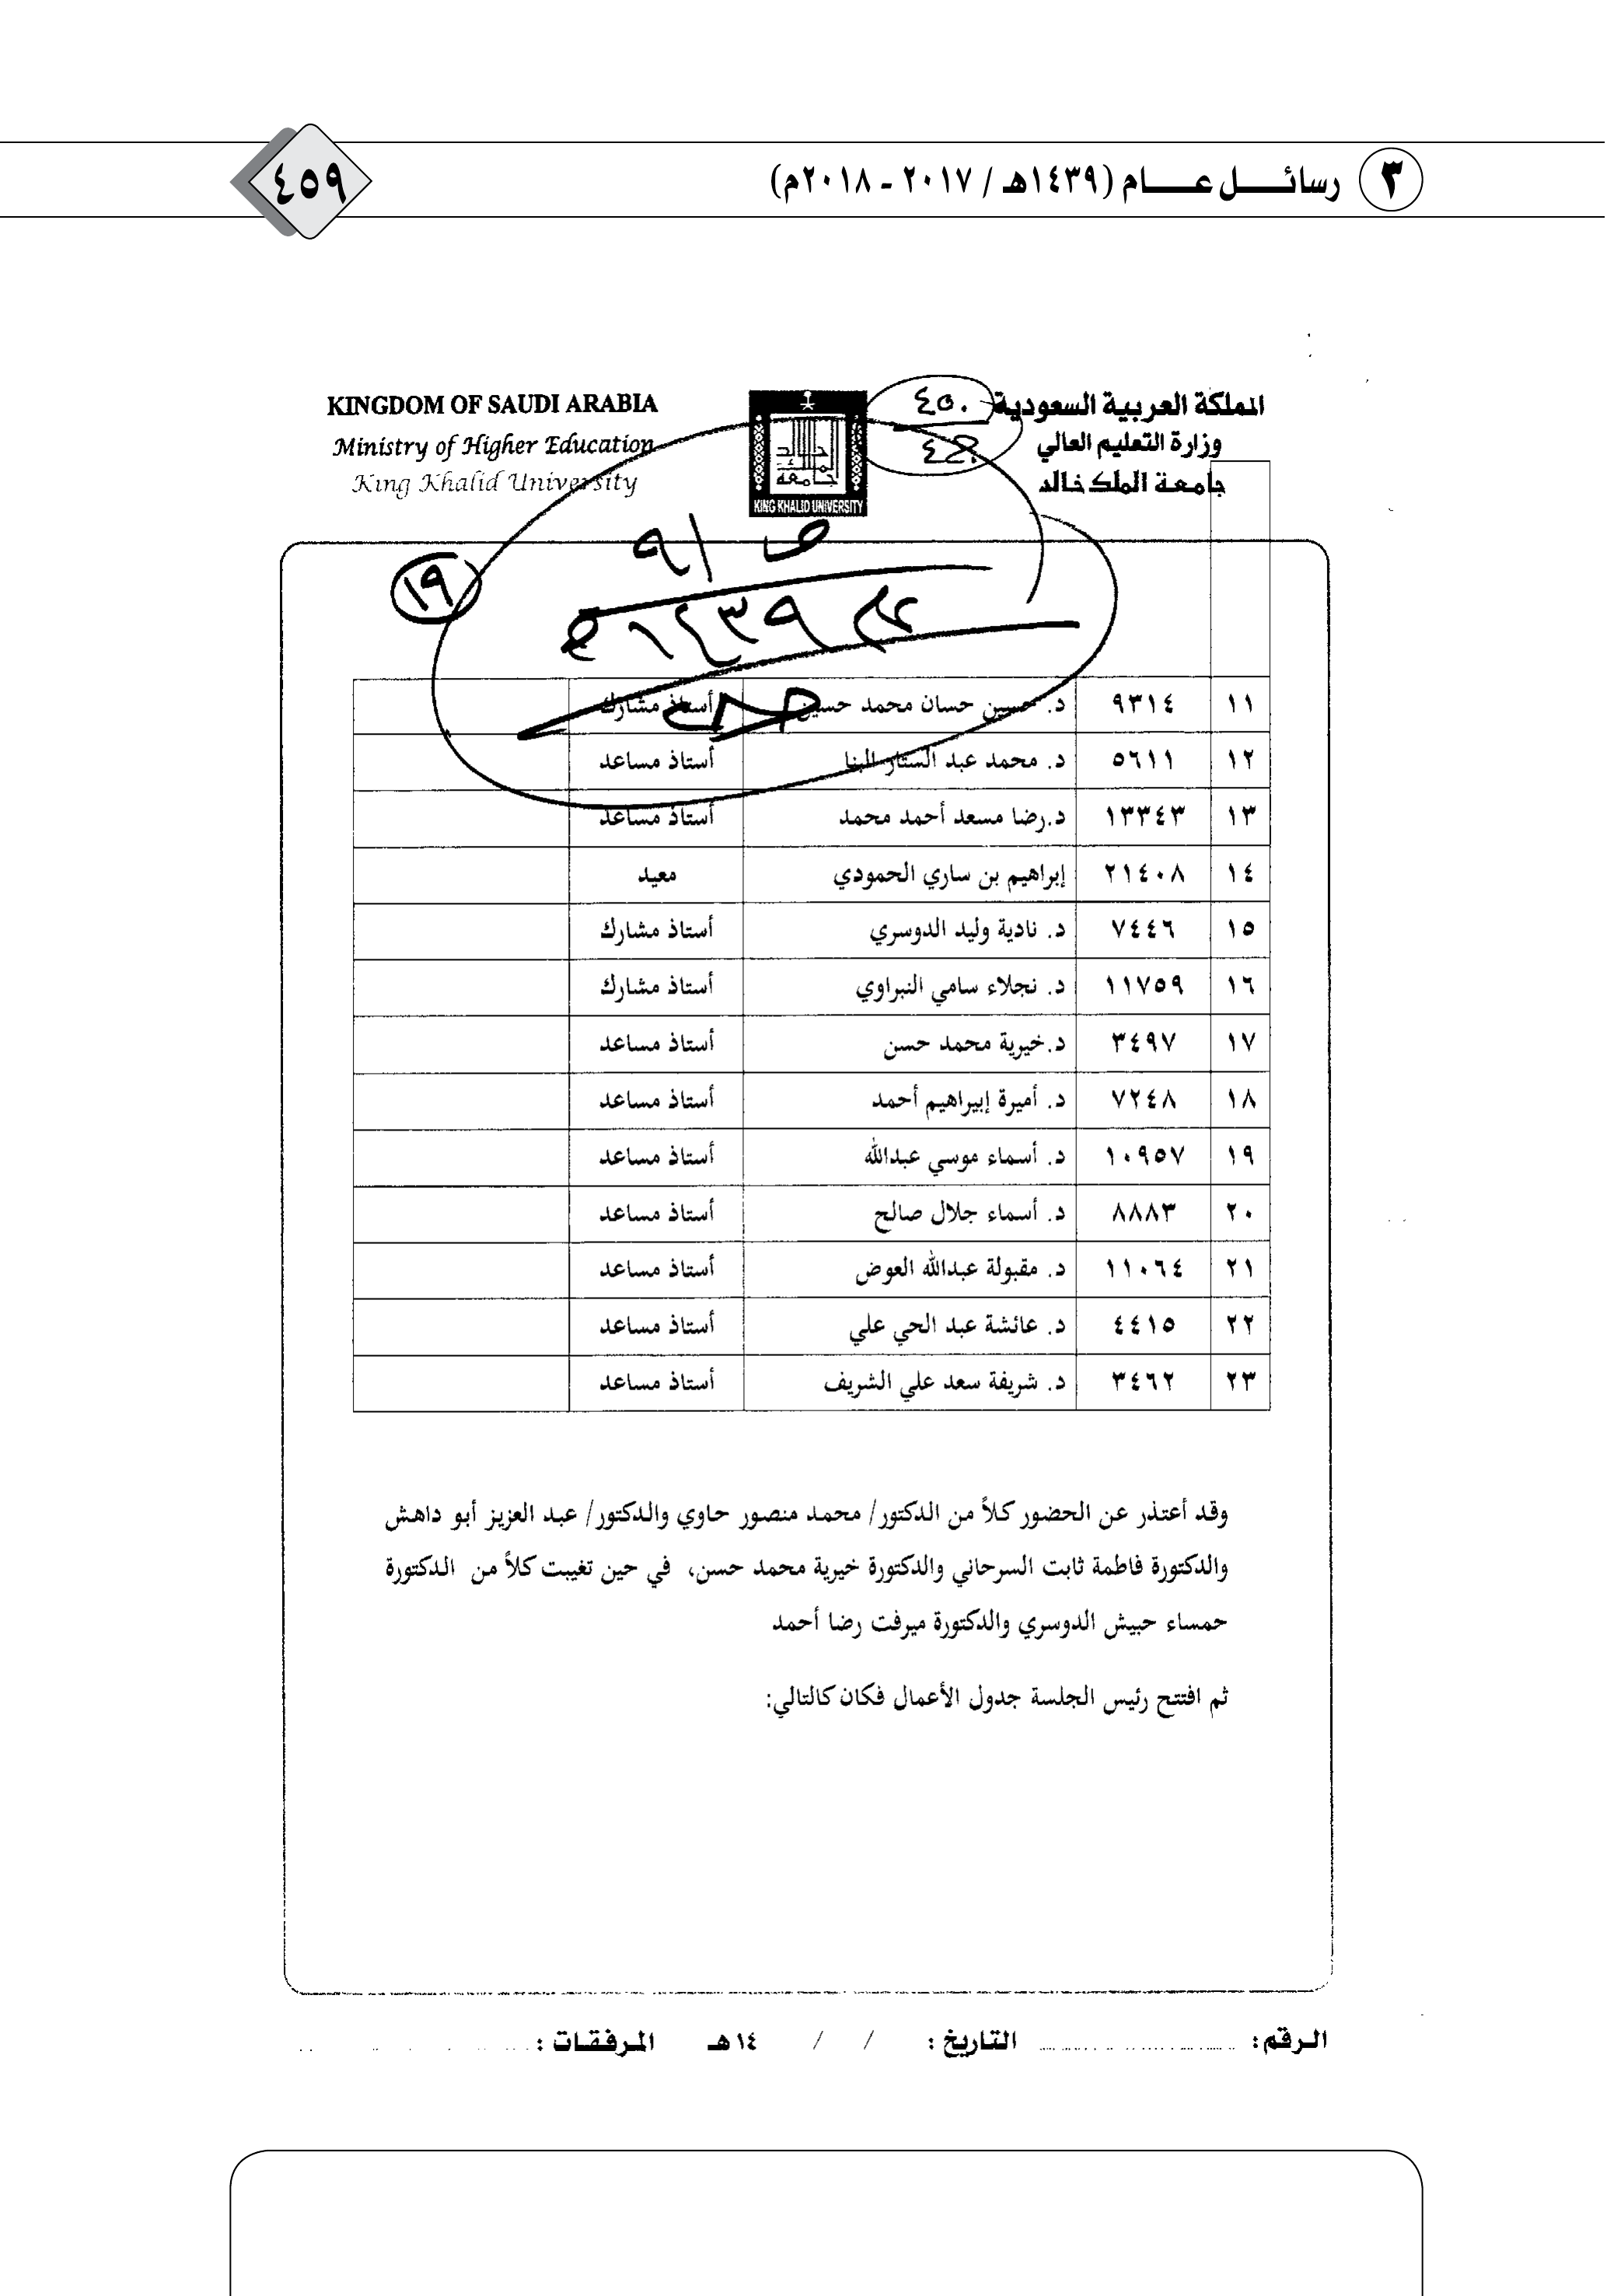 ٣ رسائل عام (١٤٣٩هـ / ٢٠١٧ - ٢٠١٨م) ٤٥٩
المملكة العربية السعودية
وزارة التعليم العالي
جامعة الملك خالد
KING KHALID UNIVERSITY
KINGDOM OF SAUDI ARABIA
Ministry of Higher Education
King Khalid University
٤٥٠
١٩
١٤٣٩
١١ ٩٣١٤ د. حسين حسان محمد حسين أستاذ مشارك
١٢ ٥٦١١ د. محمد عبد الستار البنا أستاذ مساعد
١٣ ١٣٣٤٣ د.رضا مسعد أحمد محمد أستاذ مساعد
١٤ ٢١٤٠٨ إبراهيم بن ساري الحمودي معيد
١٥ ٧٤٤٦ د. نادية وليد الدوسري أستاذ مشارك
١٦ ١١٧٥٩ د. نجلاء سامي النبراوي أستاذ مشارك
١٧ ٣٤٩٧ د.خيرية محمد حسن أستاذ مساعد
١٨ ٧٢٤٨ د. أميرة إبيراهيم أحمد أستاذ مساعد
١٩ ١٠٩٥٧ د. أسماء موسي عبدالله أستاذ مساعد
٢٠ ٨٨٨٣ د. أسماء جلال صالح أستاذ مساعد
٢١ ١١٠٦٤ د. مقبولة عبدالله العوض أستاذ مساعد
٢٢ ٤٤١٥ د. عائشة عبد الحي علي أستاذ مساعد
٢٣ ٣٤٦٢ د. شريفة سعد علي الشريف أستاذ مساعد
وقد أعتذر عن الحضور كلاً من الدكتور/ محمد منصور حاوي والدكتور/ عبد العزيز أبو داهش
والدكتورة فاطمة ثابت السرحاني والدكتورة خيرية محمد حسن، في حين تغيبت كلاً من الدكتورة
حمساء حبيش الدوسري والدكتورة ميرفت رضا أحمد
ثم افتتح رئيس الجلسة جدول الأعمال فكان كالتالي:
الرقم: التاريخ: / / ١٤هـ المرفقات: